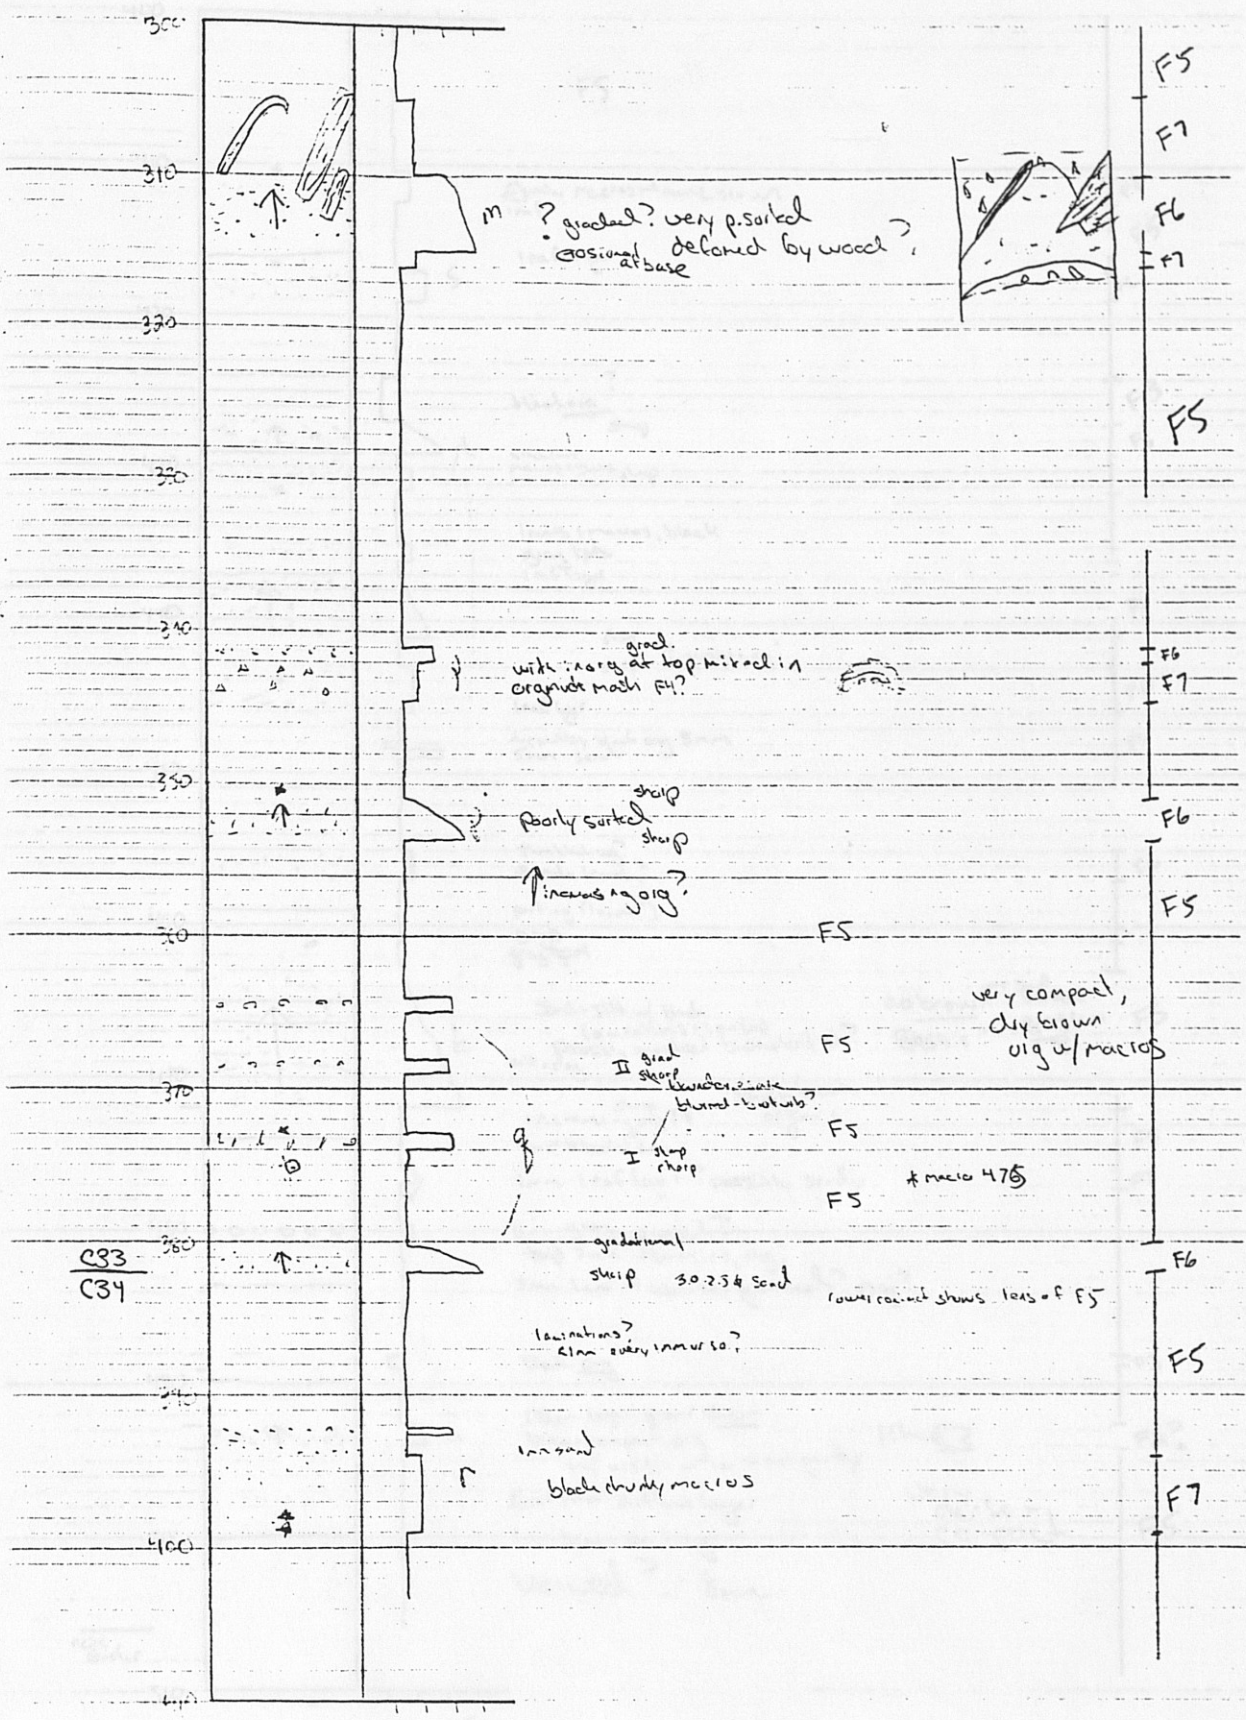 300
F5
F7
310
m ? graded? very p.sorted
erosional deformed by wood?
at base
F6
F7
320
F5
330
340
grad.
with inorg at top mixed in
F4?
F6
F7
350
sharp
poorly sorted
sharp
F6
↑ increasing org?
F5
360
F5
very compact,
dry brown
org w/macros
F5
II grad
sharp
370
blurred-bioturb?
F5
I sharp
sharp
* macro 475
F5
380
gradational
F6
C33
C34
sharp 3.0-2.5 ϕ sand
lower contact shows lens of F5
laminations?
F5
390
1mm sand
r black chunky macros
F7
400
410